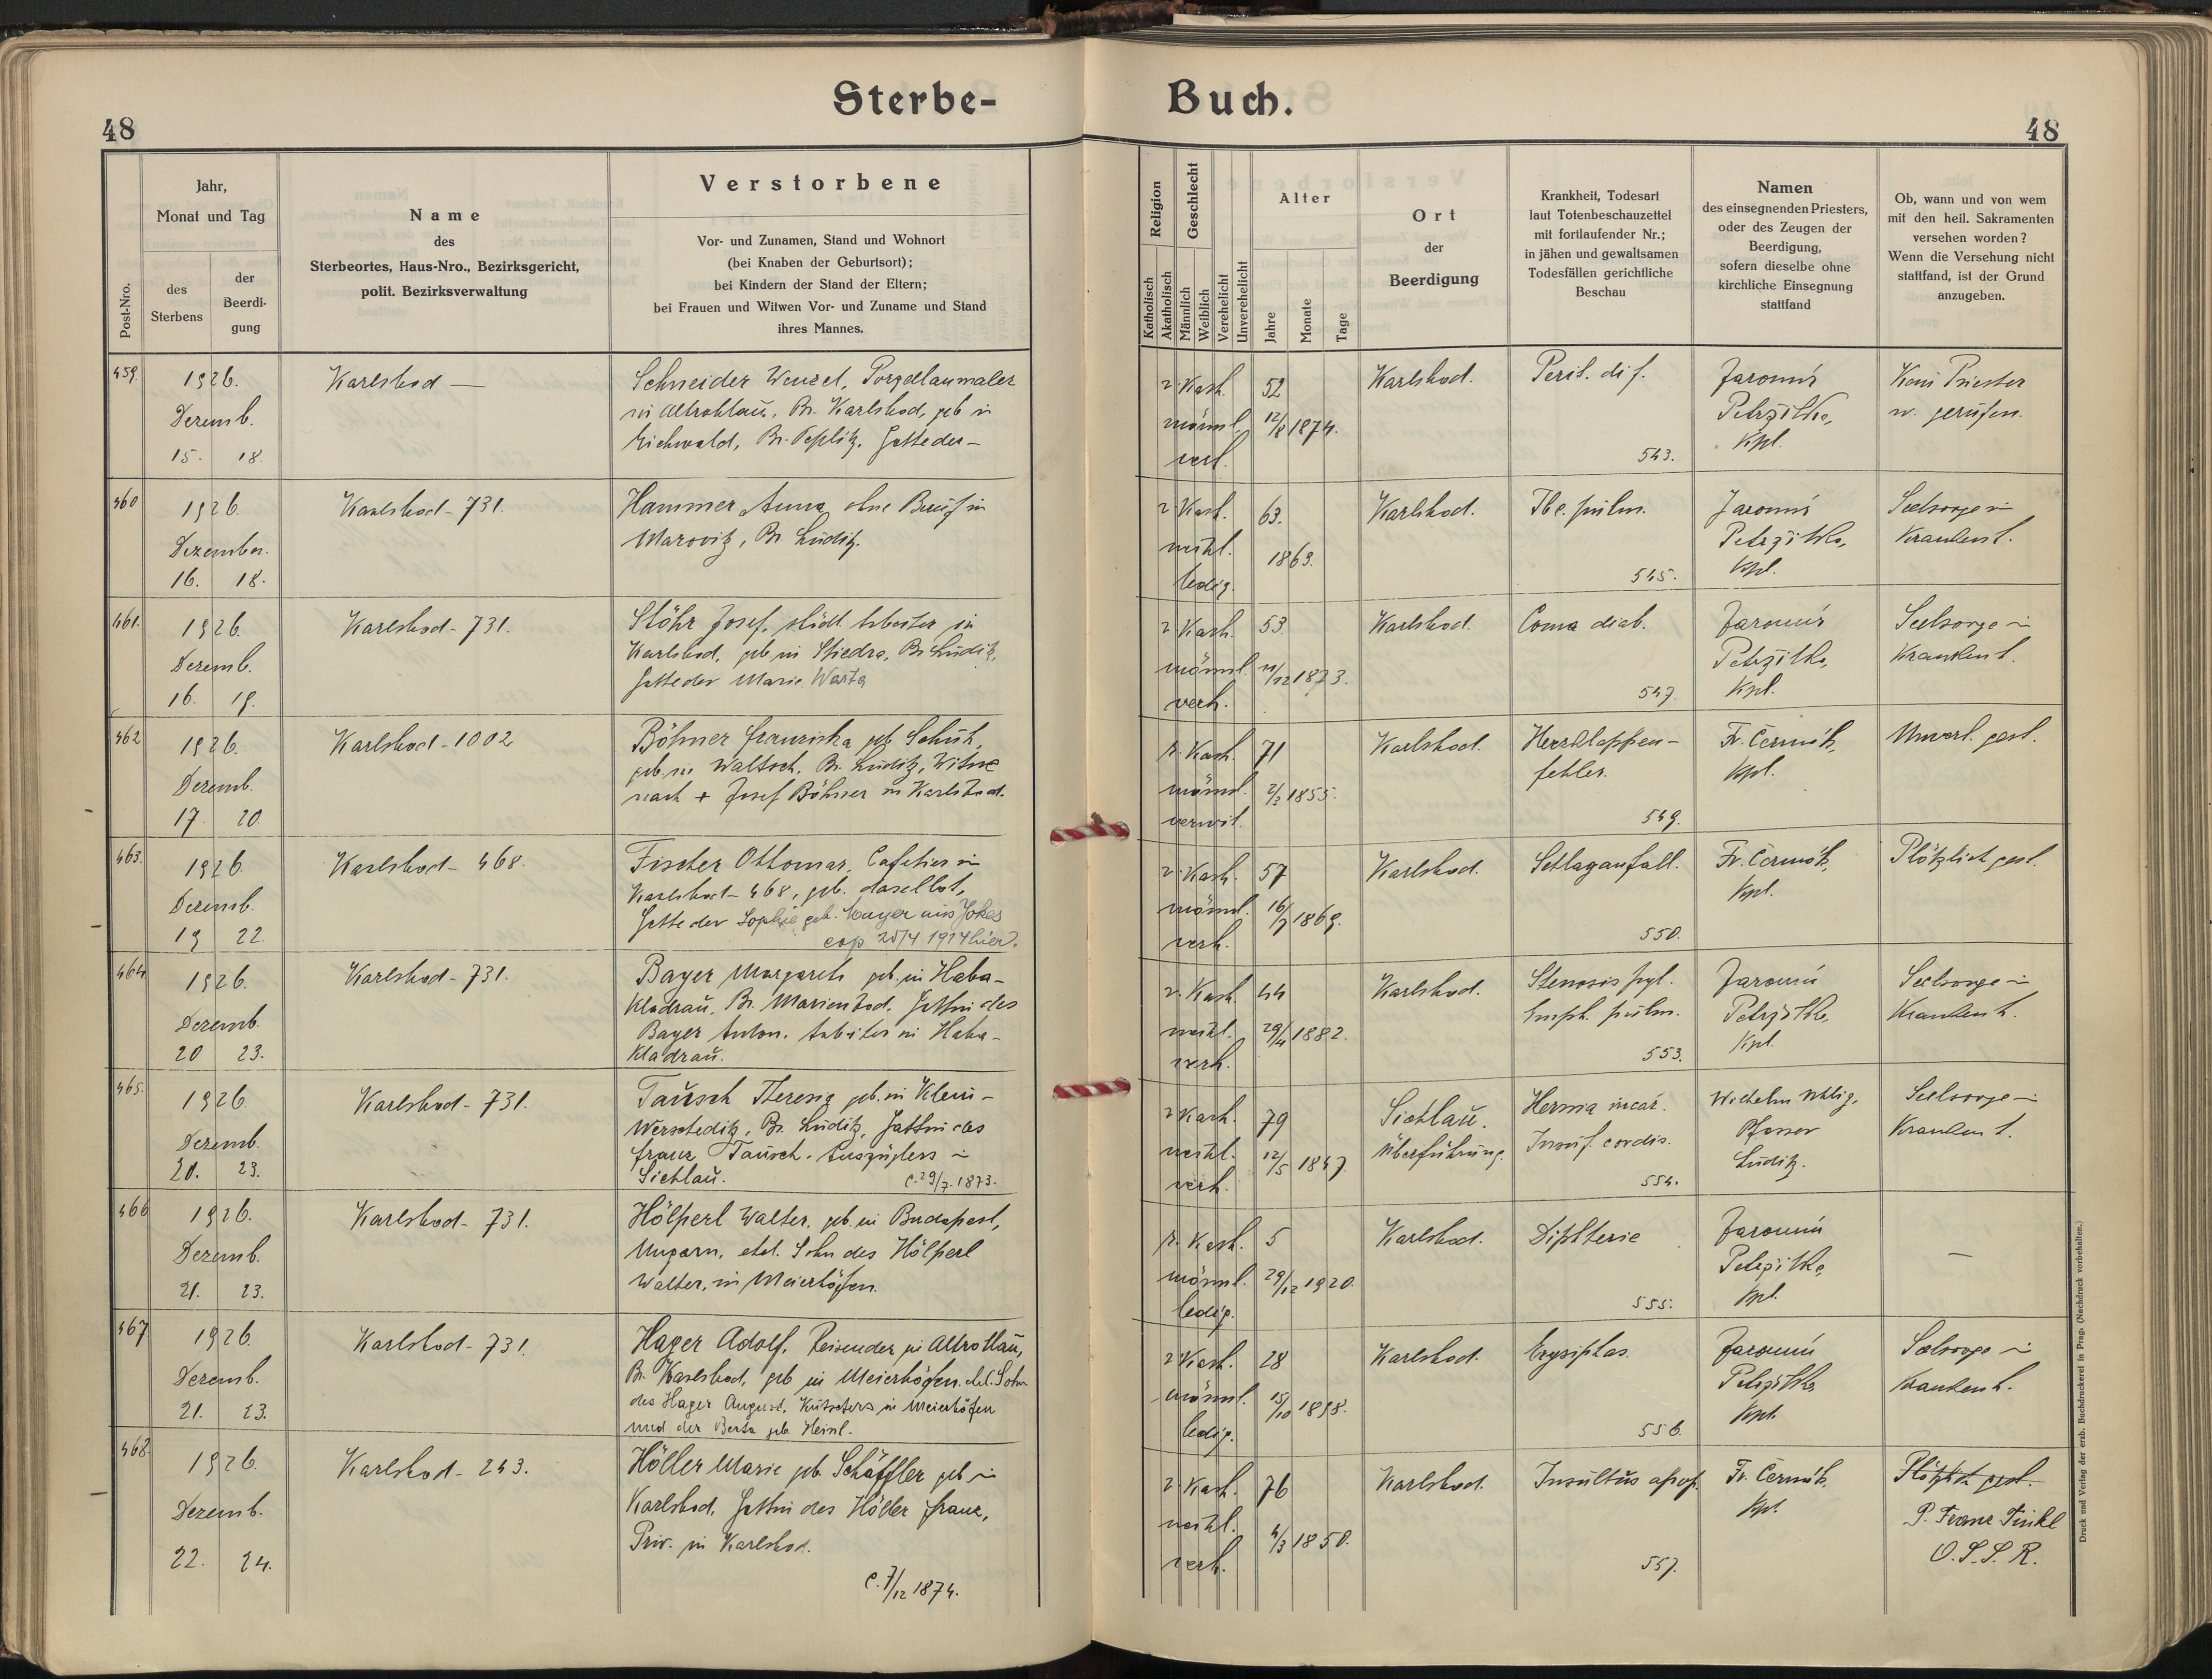 Sterbe-
Buch.
48
48
Post-Nro.
Jahr,
Monat und Tag
des
Sterbens
der
Beerdi-
gung
Name
des
Sterbeortes, Haus-Nro., Bezirksgericht,
polit. Bezirksverwaltung
Verstorbene
Vor- und Zunamen, Stand und Wohnort
(bei Knaben der Geburtsort);
bei Kindern der Stand der Eltern;
bei Frauen und Witwen Vor- und Zuname und Stand
ihres Mannes.
Religion
Katholisch
Akatholisch
Geschlecht
Männlich
Weiblich
Verehelicht
Unverehelicht
Alter
Jahre
Monate
Tage
Ort
der
Beerdigung
Krankheit, Todesart
laut Totenbeschauzettel
mit fortlaufender Nr.;
in jähen und gewaltsamen
Todesfällen gerichtliche
Beschau
Namen
des einsegnenden Priesters,
oder des Zeugen der
Beerdigung,
sofern dieselbe ohne
kirchliche Einsegnung
stattfand
Ob, wann und von wem
mit den heil. Sakramenten
versehen worden?
Wenn die Versehung nicht
stattfand, ist der Grund
anzugeben.
459.
1926.
Dezemb.
15. 18.
Karlsbad —
Schneider Wenzel, Porzellanmaler
in Altrohlau, Bz. Karlsbad, geb in
Eichwald, Bz. Teplitz. Gatte der —
r. Kath.
männl.
verh.
52
12/8 1874.
Karlsbad.
Perit. dif.
543.
Jaromír
Petrzilka,
Kpl.
Kein Priester
w. gerufen.
460
1926.
Dezember.
16. 18.
Karlsbad - 731.
Hammer Anna, ohne Beruf in
Marovitz, Bz. Luditz.
r. Kath.
weibl.
ledig.
63.
1863.
Karlsbad.
Tbc. pulm.
545.
Jaromír
Petrzilka,
Kpl.
Seelsorge in
Krankenh.
461.
1926.
Dezemb.
16. 19.
Karlsbad - 731.
Stöhr Josef, städt. Arbeiter in
Karlsbad, geb. in Stiedra, Bz. Luditz,
Gatte der Marie Warta
r. Kath.
männl.
verh.
53
11/12 1873.
Karlsbad.
Coma diab.
547.
Jaromír
Petrzilka,
Kpl.
Seelsorge in
Krankenh.
462
1926.
Dezemb.
17. 20.
Karlsbad - 1002
Böhmer Franziska geb. Schuh,
geb. in Waltsch, Bz. Luditz, Witwe
nach + Josef Böhmer in Karlsbad.
r. Kath.
männl.
verwit.
71
2/3 1855.
Karlsbad.
Herzklappen-
fehler.
549.
Fr. Čermák,
Kpl.
Unverl. gest.
463.
1926.
Dezemb.
19 22.
Karlsbad - 468.
Fischer Ottomar, Cafetier in
Karlsbad - 468, geb. daselbst,
Gatte der Sophie geb. Mayer aus Jokes
cop 25/4 1914 hier.
r. Kath.
männl.
verh.
57
16/7 1869.
Karlsbad.
Schlaganfall.
550.
Fr. Čermák,
Kpl.
Plötzlich gest.
464.
1926.
Dezemb.
20 23.
Karlsbad - 731.
Bayer Margareth geb. in Haba-
Kladrau, Bz. Marienbad. Gattin des
Bayer Anton. Arbeiter in Haba-
Kladrau.
r. Kath.
weibl.
verh.
44
29/4 1882.
Karlsbad.
Stenosis pyl.
Emph. pulm.
553.
Jaromír
Petrzilka,
Kpl.
Seelsorge in
Krankenh.
465.
1926
Dezemb.
20. 23.
Karlsbad - 731.
Tausch Theresia geb. in Klein-
Werscheditz, Bz. Luditz, Gattin des
Franz Tausch. Auszüglers in
Sichlau. C. 29/7. 1873.
r. Kath.
weibl.
verh.
79
12/5 1847.
Sichlau.
Überführung.
Hernia incar.
Insuf. cordis.
554.
Wilhelm
Pfarrer
Luditz.
Seelsorge in
Krankenh.
466
1926.
Dezemb.
21. 23.
Karlsbad - 731.
Hölperl Walter, geb. in Budapest,
Ungarn, ehel. Sohn des Hölperl
Walter, in Meierhöfen.
r. Kath.
männl.
ledig.
5
29/12 1920.
Karlsbad.
Diphterie
555.
Jaromír
Petrzilka,
Kpl.
—
467
1926.
Dezemb.
21. 23.
Karlsbad - 731.
Hager Adolf, Reisender in Altrohlau,
Bz. Karlsbad, geb in Meierhöfen. ehel. Sohn
des Hager August, Kutschers in Meierhöfen
und der Berta geb. Heinl.
r. Kath.
männl.
ledig.
28
15/10 1898.
Karlsbad.
Erysiplas.
556.
Jaromír
Petrzilka,
Kpl.
Seelsorge in
Krankenh.
468.
1926.
Dezemb.
22. 24.
Karlsbad - 243.
Höller Marie geb. Schäffler geb in
Karlsbad, Gattin des Höller Franz,
Priv. in Karlsbad.
C. 7/12 1874.
r. Kath.
weibl.
verh.
76
4/3 1850.
Karlsbad.
Insultus apop.
557.
Fr. Čermák,
Kpl.
Plötzlich gest.
P. Franz Finkl
O.S.S.R.
Druck und Verlag der erzb. Buchdruckerei in Prag. (Nachdruck vorbehalten.)